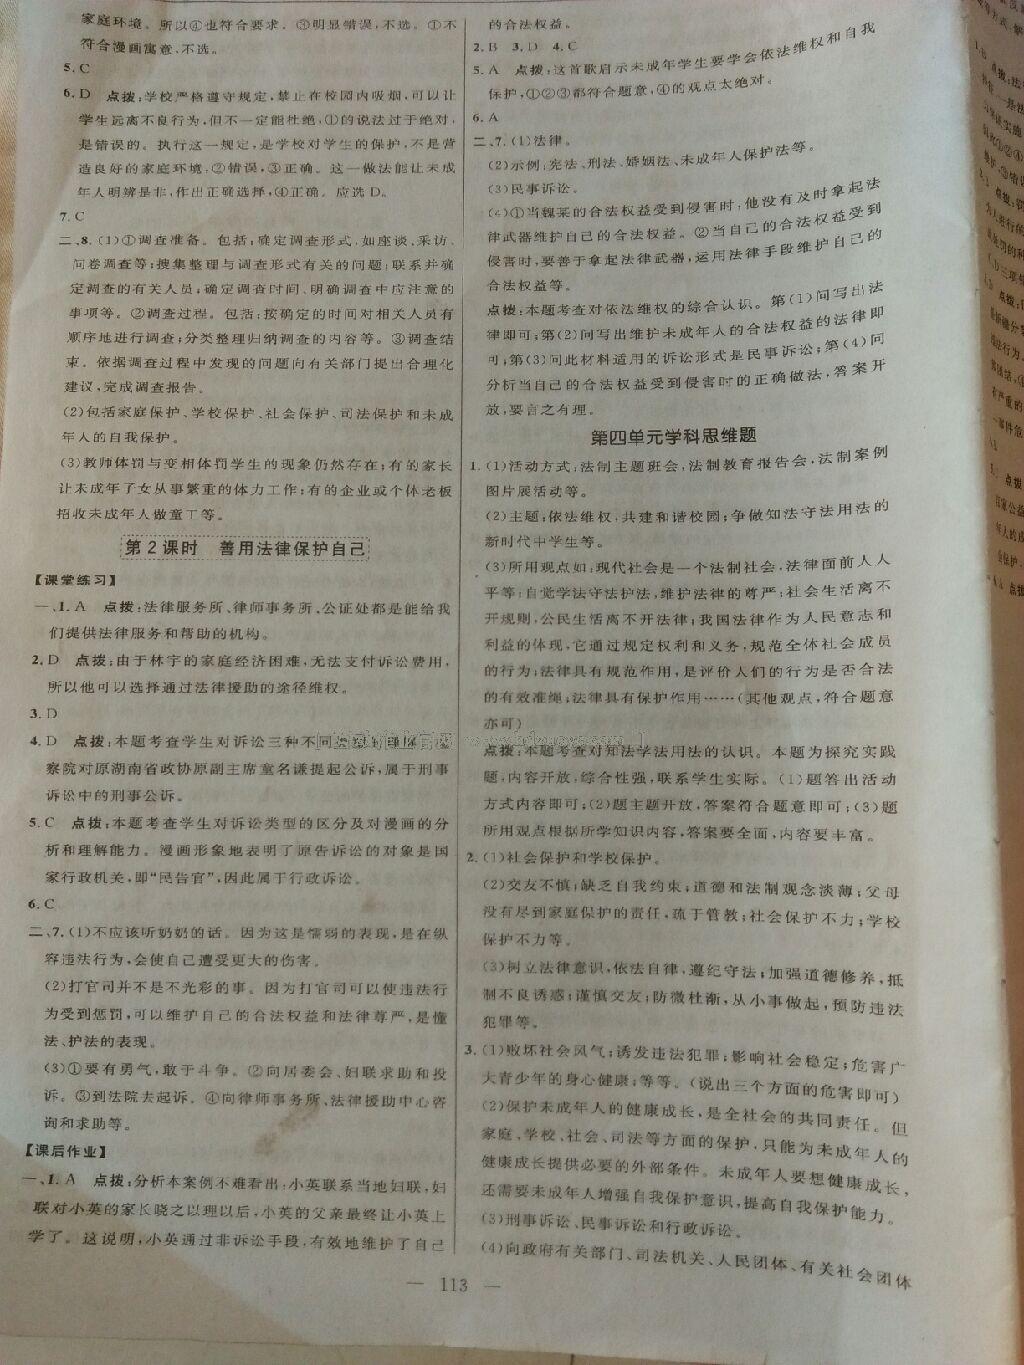 家庭环境。所以④也符合要求。③明显错误,不选。①不
符合漫画寓意,不选。
5. C
6. D 点拨:学校严格遵守规定,禁止在校园内吸烟,可以让
学生远离不良行为,但不一定能杜绝,①的说法过于绝对,
是错误的。执行这一规定,是学校对学生的保护,不是营
造良好的家庭环境,②错误,③正确。这一做法能让未成
年人明辨是非,作出正确选择,④正确。应选D。
7. C
二、8. (1)①调查准备。包括:确定调查形式,如座谈、采访、
问卷调查等;搜集整理与调查形式有关的问题;联系并确
定调查的有关人员;确定调查时间、明确调查中应注意的
事项等。②调查过程。包括:按确定的时间对相关人员有
顺序地进行调查;分类整理归纳调查的内容等。③调查结
束。依据调查过程中发现的问题向有关部门提出合理化
建议,完成调查报告。
(2)包括家庭保护、学校保护、社会保护、司法保护和未成
年人的自我保护。
(3)教师体罚与变相体罚学生的现象仍然存在;有的家长
让未成年子女从事繁重的体力工作;有的企业或个体老板
招收未成年人做童工等。
第2课时 善用法律保护自己
【课堂练习】
一、1. A 点拨:法律服务所、律师事务所、公证处都是能给我
们提供法律服务和帮助的机构。
2. D 点拨:由于林宇的家庭经济困难,无法支付诉讼费用,
所以他可以选择通过法律援助的途径维权。
3. D
4. D 点拨:本题考查学生对诉讼三种不同类型的理解。
察院对原湖南省政协原副主席童名谦提起公诉,属于刑事
诉讼中的刑事公诉。
5. C 点拨:本题考查学生对诉讼类型的区分及对漫画的分
析和理解能力。漫画形象地表明了原告诉讼的对象是国
家行政机关,即“民告官”,因此属于行政诉讼。
6. C
二、7. (1)不应该听奶奶的话。因为这是懦弱的表现,是在纵
容违法行为,会使自己遭受更大的伤害。
(2)打官司并不是不光彩的事。因为打官司可以使违法行
为受到惩罚,可以维护自己的合法权益和法律尊严,是懂
法、护法的表现。
(3)①要有勇气,敢于斗争。②向居委会、妇联求助和投
诉。③到法院去起诉。④向律师事务所、法律援助中心咨
询和求助等。
【课后作业】
一、1. A 点拨:分析本案例不难看出,小英联系当地妇联,妇
联对小英的家长晓之以理以后,小英的父亲最终让小英上
学了。这说明,小英通过非诉讼手段,有效地维护了自己
的合法权益。
2. B 3. D 4. C
5. A 点拨:这首歌启示未成年学生要学会依法维权和自我
保护,①②③都符合题意,④的观点太绝对。
6. A
二、7. (1)法律。
(2)示例:宪法、刑法、婚姻法、未成年人保护法等。
(3)民事诉讼。
(4)①当魏某的合法权益受到侵害时,他没有及时拿起法
律武器维护自己的合法权益。②当自己的合法权益受到
侵害时,要善于拿起法律武器,运用法律手段维护自己的
合法权益等。
点拨:本题考查对依法维权的综合认识。第(1)问写出法
律即可;第(2)问写出维护未成年人的合法权益的法律即
可;第(3)问此材料适用的诉讼形式是民事诉讼;第(4)问
分析当自己的合法权益受到侵害时的正确做法,答案开
放,要言之有理。
第四单元学科思维题
1. (1)活动方式:法制主题班会,法制教育报告会,法制案例
图片展活动等。
(2)主题:依法维权,共建和谐校园;争做知法守法用法的
新时代中学生等。
(3)所用观点如:现代社会是一个法制社会,法律面前人人
平等;自觉学法守法护法,维护法律的尊严;社会生活离不
开规则,公民生活离不开法律;我国法律作为人民意志和
利益的体现,它通过规定权利和义务,规范全体社会成员
的行为;法律具有规范作用,是评价人们的行为是否合法
的有效准绳;法律具有保护作用……(其他观点,符合题意
亦可)
点拨:本题考查对知法学法用法的认识。本题为探究实践
题,内容开放,综合性强,联系学生实际。(1)题答出活动
方式内容即可;(2)题主题开放,答案符合题意即可;(3)题
所用观点根据所学知识内容,答案要全面,内容要丰富。
2. (1)社会保护和学校保护。
(2)交友不慎;缺乏自我约束;道德和法制观念淡薄;父母
没有尽到家庭保护的责任,疏于管教;社会保护不力;学校
保护不力等。
(3)树立法律意识,依法自律,遵纪守法;加强道德修养,抵
制不良诱惑;谨慎交友;防微杜渐,从小事做起,预防违法
犯罪等。
3. (1)败坏社会风气;诱发违法犯罪;影响社会稳定;危害广
大青少年的身心健康;等等。(说出三个方面的危害即可)
(2)保护未成年人的健康成长,是全社会的共同责任。但
家庭、学校、社会、司法等方面的保护,只能为未成年人的
健康成长提供必要的外部条件。未成年人要想健康成长,
还需要未成年人增强自我保护意识,提高自我保护能力。
(3)刑事诉讼、民事诉讼和行政诉讼。
(4)向政府有关部门、司法机关、人民团体、有关社会团体
— 113 —